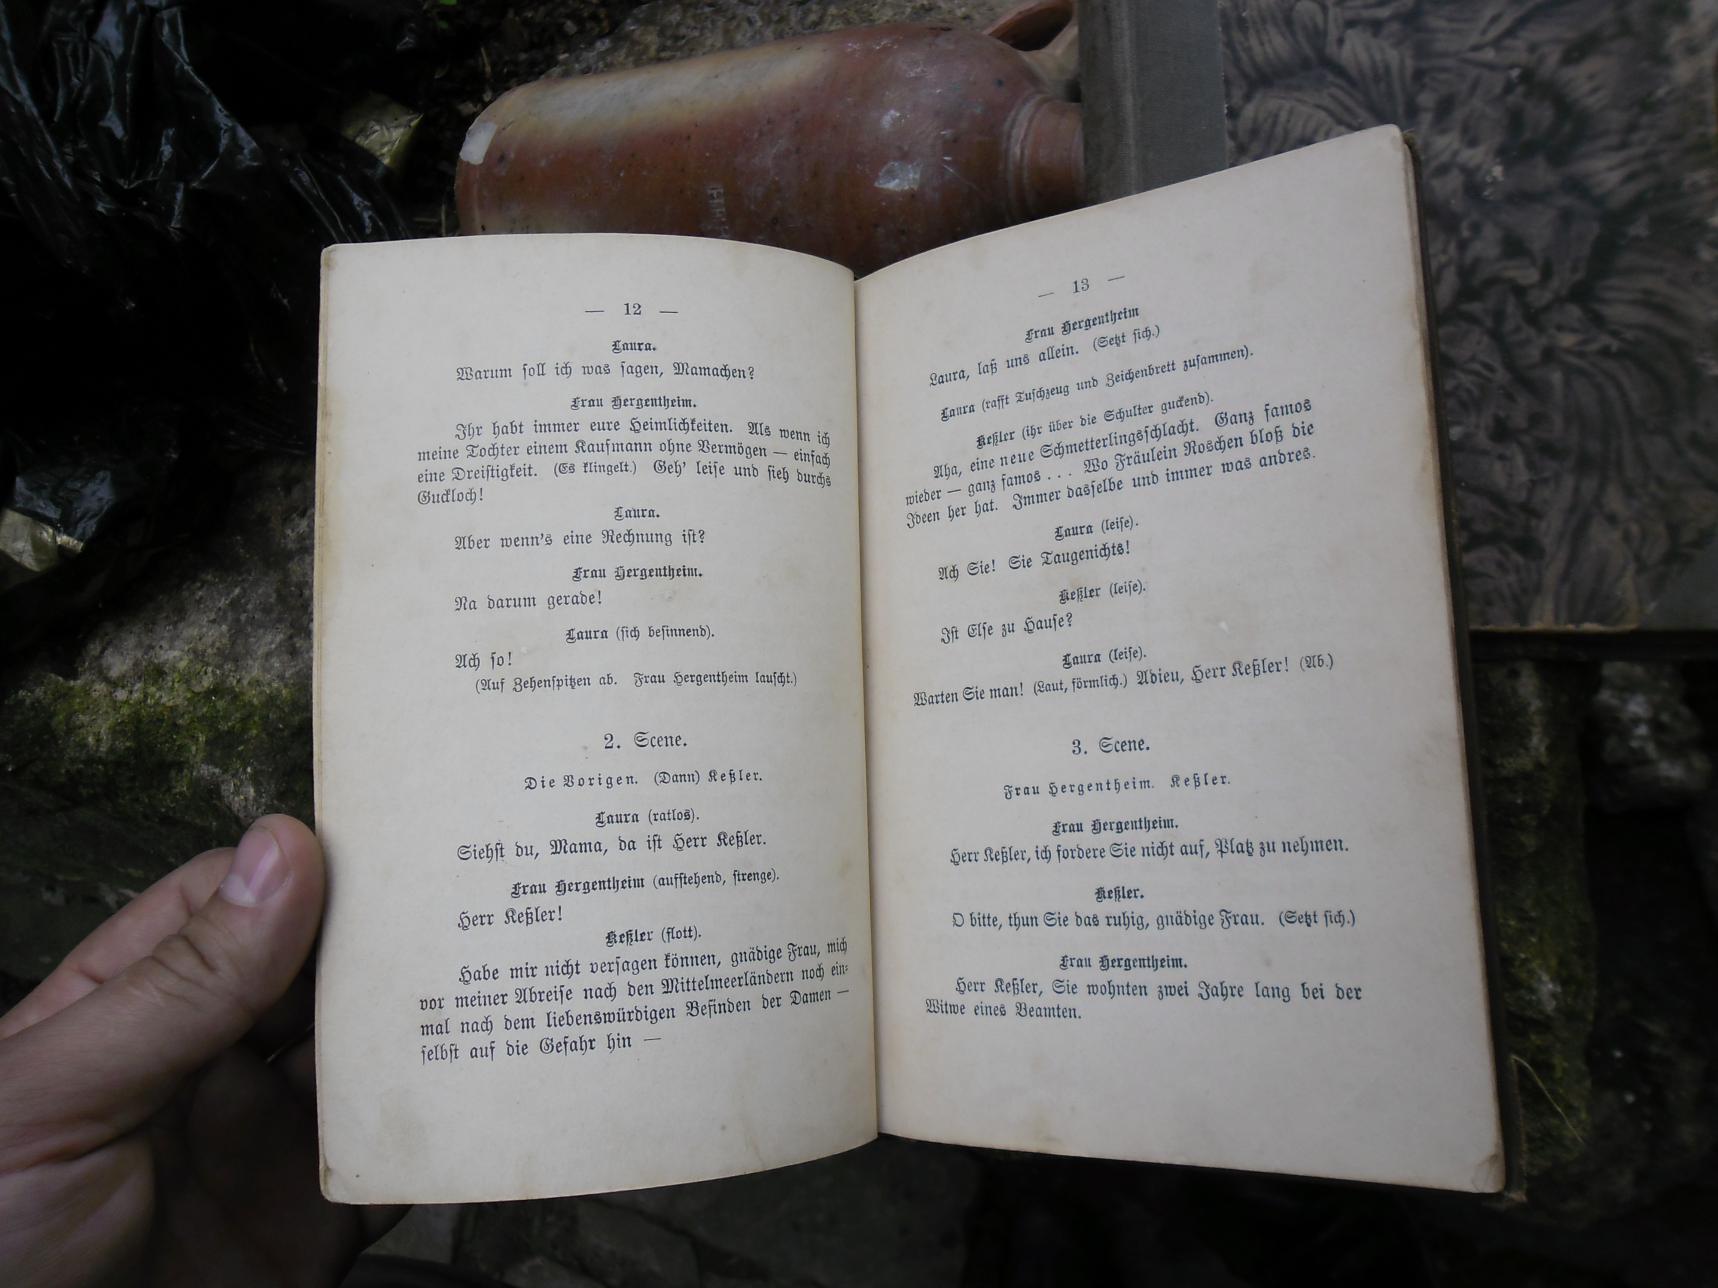 — 12 —
Laura.
Warum soll ich was sagen, Mamachen?
Frau Hergentheim.
Ihr habt immer eure Heimlichkeiten. Als wenn ich
meine Tochter einem Kaufmann ohne Vermögen — einfach
eine Dreistigkeit. (Es klingelt.) Geh' leise und sieh durchs
Guckloch!
Laura.
Aber wenn's eine Rechnung ist?
Frau Hergentheim.
Na darum gerade!
Laura (sich besinnend).
Ach so!
(Auf Zehenspitzen ab. Frau Hergentheim lauscht.)
2. Scene.
Die Vorigen. (Dann) Keßler.
Laura (ratlos).
Siehst du, Mama, da ist Herr Keßler.
Frau Hergentheim (aufstehend, strenge).
Herr Keßler!
Keßler (flott).
Habe mir nicht versagen können, gnädige Frau, mich
vor meiner Abreise nach den Mittelmeerländern noch ein-
mal nach dem liebenswürdigen Befinden der Damen —
selbst auf die Gefahr hin —
— 13 —
Frau Hergentheim
Laura, laß uns allein. (Setzt sich.)
Laura (rafft Tuschzeug und Zeichenbrett zusammen).
Keßler (ihr über die Schulter guckend).
Aha, eine neue Schmetterlingsschlacht. Ganz famos
wieder — ganz famos . . . Wo Fräulein Roschen bloß die
Ideen her hat. Immer dasselbe und immer was andres.
Laura (leise).
Ach Sie! Sie Taugenichts!
Keßler (leise).
Ist Else zu Hause?
Laura (leise).
Warten Sie man! (Laut, förmlich.) Adieu, Herr Keßler! (Ab.)
3. Scene.
Frau Hergentheim. Keßler.
Frau Hergentheim.
Herr Keßler, ich fordere Sie nicht auf, Platz zu nehmen.
Keßler.
O bitte, thun Sie das ruhig, gnädige Frau. (Setzt sich.)
Frau Hergentheim.
Herr Keßler, Sie wohnten zwei Jahre lang bei der
Witwe eines Beamten.